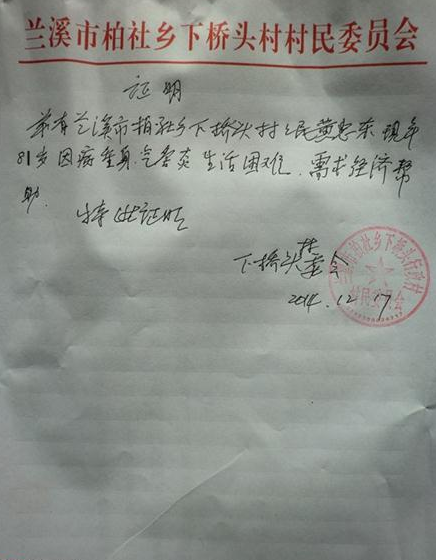 兰溪市柏社乡下桥头村村民委员会
证明
兹有兰溪市柏社乡下桥头村村民黄忠东现年
81岁因病重身气管炎生活困难.需求经济帮
助.
特此证明
下桥头村委会
2014.12.17
村民委员会